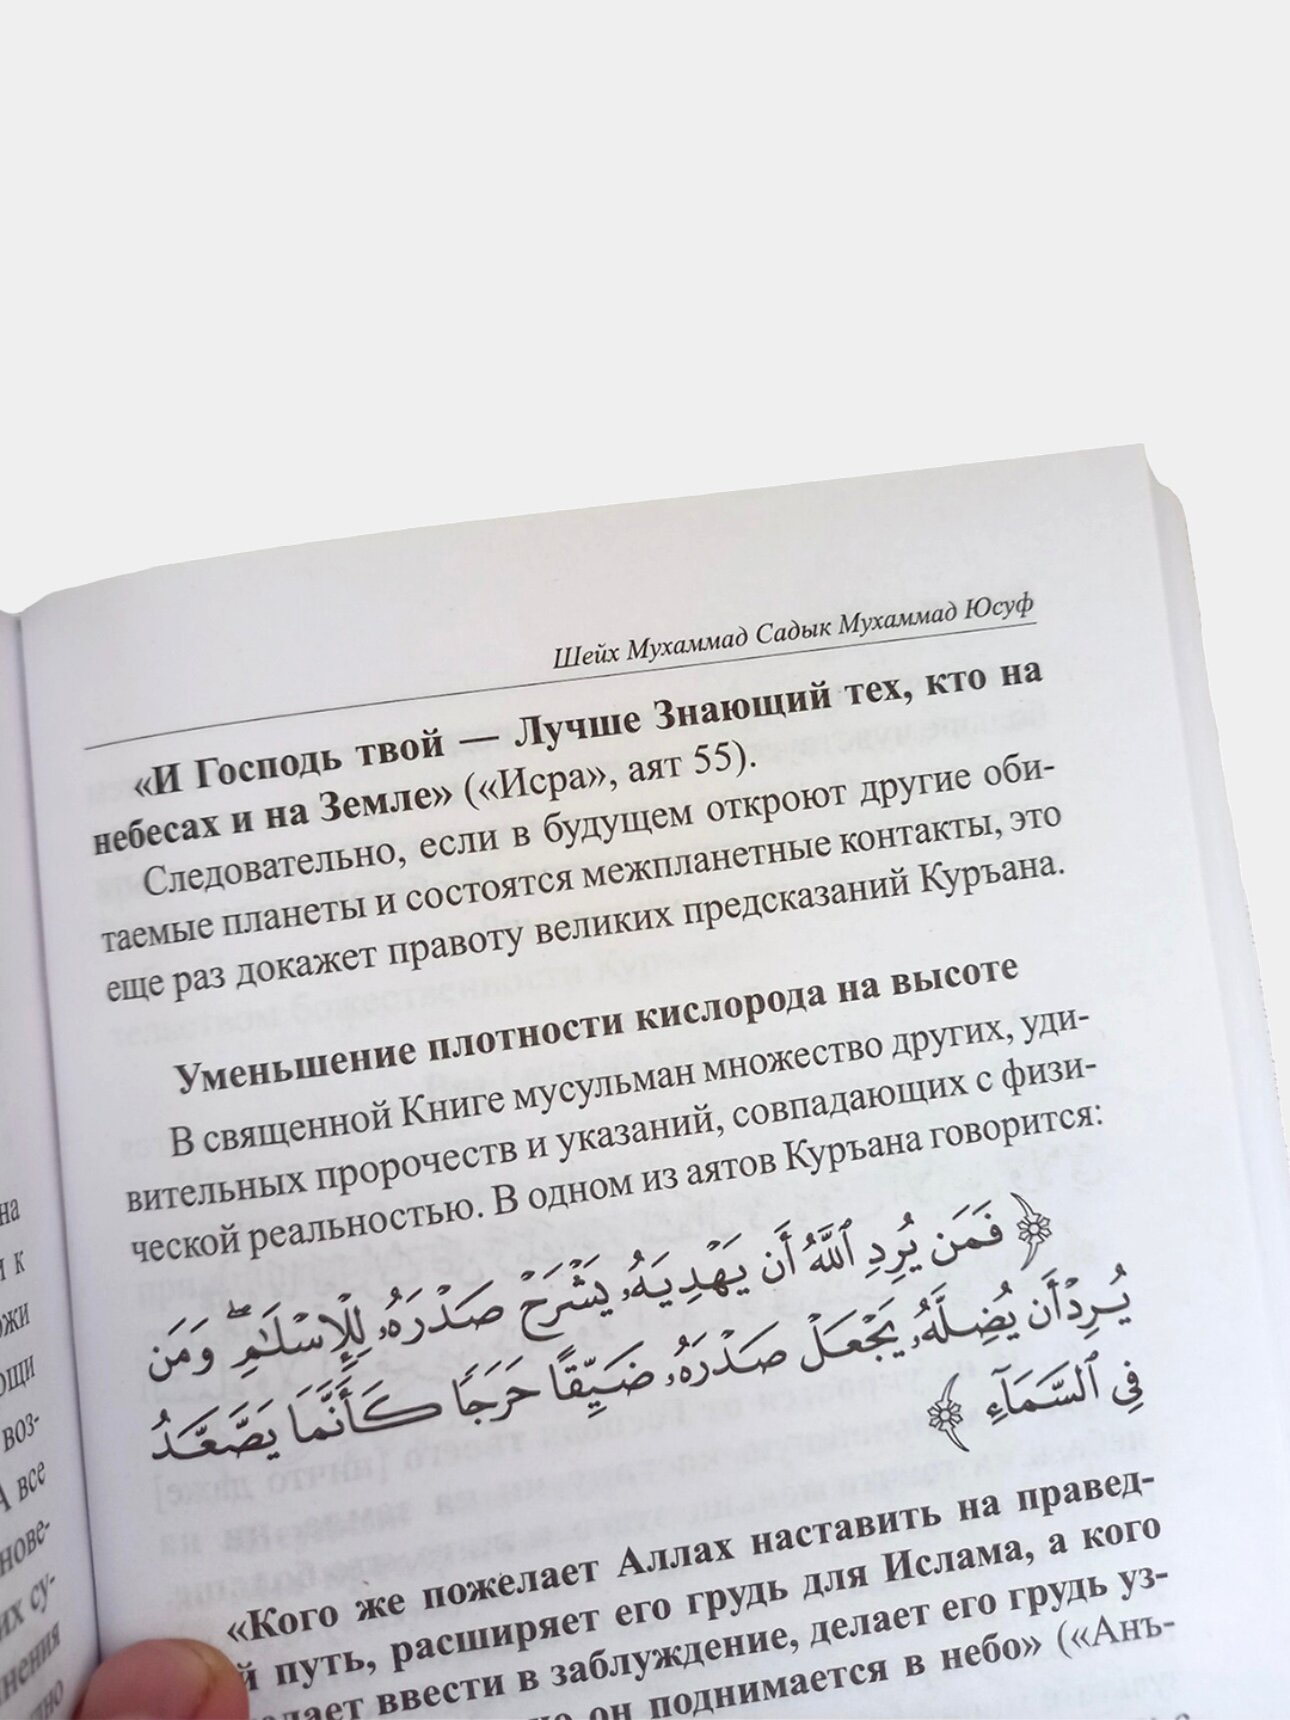 Шейх Мухаммад Садык Мухаммад Юсуф
«И Господь твой — Лучше Знающий тех, кто на
небесах и на Земле» («Исра», аят 55).
Следовательно, если в будущем откроют другие оби-
таемые планеты и состоятся межпланетные контакты, это
еще раз докажет правоту великих предсказаний Куръана.
Уменьшение плотности кислорода на высоте
В священной Книге мусульман множество других, уди-
вительных пророчеств и указаний, совпадающих с физи-
ческой реальностью. В одном из аятов Куръана говорится:
﴿ فَمَن يُرِدِ ٱللَّهُ أَن يَهْدِيَهُۥ يَشْرَحْ صَدْرَهُۥ لِلْإِسْلَٰمِ ۖ وَمَن
يُرِدْ أَن يُضِلَّهُۥ يَجْعَلْ صَدْرَهُۥ ضَيِّقًا حَرَجًا كَأَنَّمَا يَصَّعَّدُ
فِى ٱلسَّمَآءِ ﴾
«Кого же пожелает Аллах наставить на правед-
й путь, расширяет его грудь для Ислама, а кого
ввести в заблуждение, делает его грудь уз-
он поднимается в небо» («Анъ-
на
к
воз-
А все
нове-
их су-